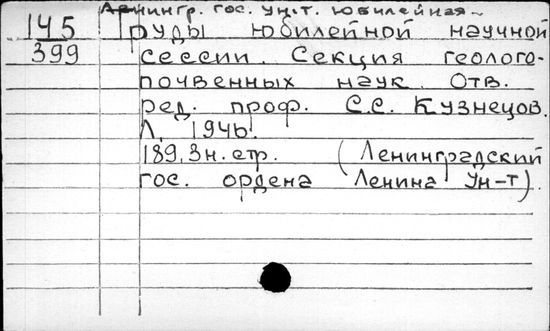 Ленингр. гос. ун-т. Юбилейная
145 Труды юбилейной научной
399 сессии. Секция геолого-
почвенных наук. Отв.
ред. проф. С.С. Кузнецов.
Л. 1946.
189, 3 н. стр. (Ленинградский
гос. ордена Ленина Ун-т).